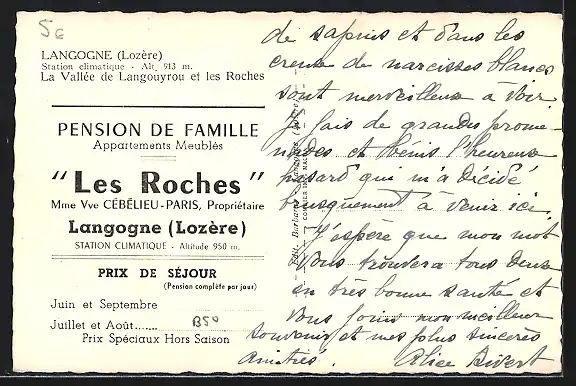 5G
LANGOGNE (Lozère)
Station climatique - Alt. 913 m.
La Vallée de Langouyrou et les Roches
PENSION DE FAMILLE
Appartements Meublés
"Les Roches"
Mme Vve CÉBÉLIEU-PARIS, Propriétaire
Langogne (Lozère)
STATION CLIMATIQUE - Altitude 950 m.
PRIX DE SÉJOUR
(Pension complète par jour)
Juin et Septembre
Juillet et Août...... 850
Prix Spéciaux Hors Saison
de sapins et dans les
creux de narcisses blancs
sont merveilleux a voir.
Je fais de grandes prome-
nades et bénis l'heureux
hasard qui m'a décidé
brusquement à venir ici.
J'espère que mon mot
vous trouvera tous deux
en très bonne santé et
vous joins mon meilleur
souvenir et mes plus sincères
amitiés. Alice Bivert